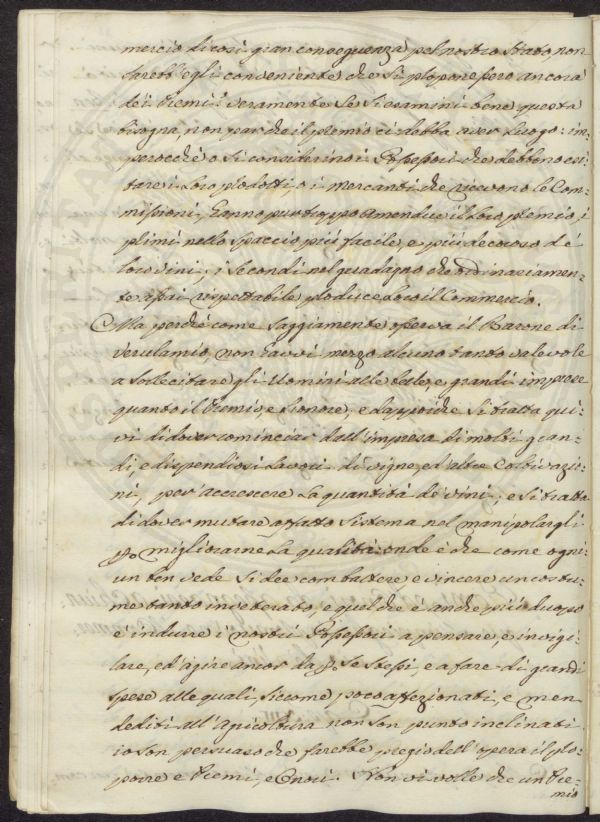 mercio di così gran conseguenza pel nostro Stato, non
sarebb'egli conveniente che si proponessero ancora
de i Premi? veramente se si esamini bene questa
bisogna, non par che il premio ci debba aver luogo: im=
perocchè o si considerino i Possessori che debbono esi=
tare i loro prodotti, o i mercanti che ricevono le Com=
missioni, hanno purtroppo amendue il loro premio, i
primi nello spaccio più facile, e più decoroso de
loro vini; i secondi nel guadagno che ordinariamen=
te assai rispettabile produce loro il Commercio.
Ma perchè come saggiamente osserva il Barone di
Verulamio, non havvi mezzo alcuno tanto valevole
a sollecitare gli Uomini alle belle, e grandi imprese
quanto il Premio, e l'onore, e dappoichè si tratta qui=
vi di dover cominciar dall'impresa di molti gran=
di, e dispendiosi lavori di vigne, ed altre Coltivazio=
ni, per accrescere la quantità de vini, e si tratta
di dover mutare affatto sistema nel manipolargli
po migliorarne la qualità: onde è che come ogni
un ben vede si dee combattere, e vincere un costu=
me tanto inveterato, e quel che è anche più duopo
è indurre i nostri Possessori a pensare, e invigi=
lare, ed agire ancor da po se stessi, e a fare di grandi
spese alle quali, siccome poco affezionati, e men
dediti all'Agricoltura non son punto inclinati
io son persuaso che sarebbe pregio dell'opera il pro=
porre e Premi, e Onori. Non vi volle che un Pre=
mio